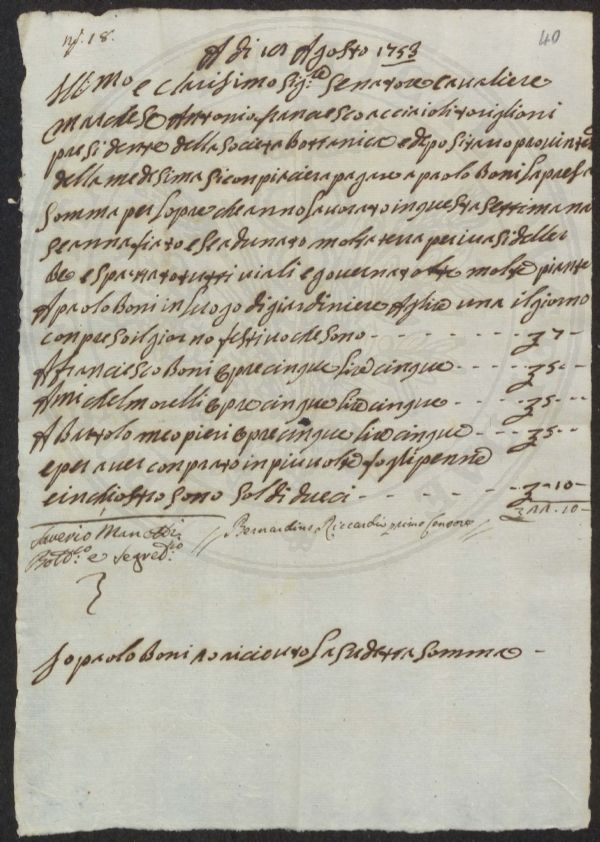 nº. 18.
40
A di Agosto 1753
Ill:mo e clarisimo Sig:re Senatore e cavaliere
marchese Antonio francesco acciaioli toriglioni
presidente della Societa Bottanica e dipositario
della medesima si conpiacera pagare a paolo Boni la presa
Somma per lopre che anno lavorato in questa settimana
Se annafiato e se adunato molta tera per i vasi delle
be e spazzato tutti i viali e governato molte piante
A paolo Boni in luogo di giardiniere una il giorno
conpreso il giorno festivo che sono - - - - - - 7 -
A francesco Boni opre cinque lire cinque - - - - 5 - -
A michel morelli opre cinque lire cinque - - - - 5 - -
A Bartolomeo pieri opre cinque lire cinque - - - 5 - -
e per aver conprato in piu volte fogli penne
e inchiostro sono soldi dieci - - - - - - - -10 -
22.-10-
Saverio Manetti
Bott:co e Segret:rio
// Bernardino Riccardi primo Censore //
Io paolo Boni o riceuto la sudetta somma -